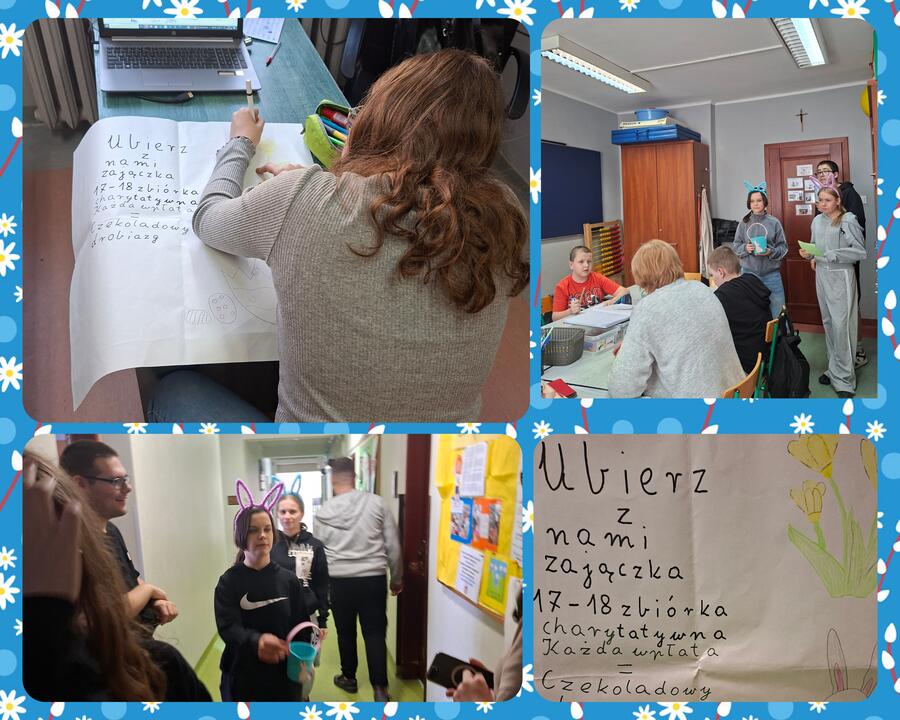 Ubierz
z
nami
zajączka
17-18 zbiórka
charytatywna
Każda wpłata
=
Czekoladowy
drobiazg
Ubierz
z
nami
zajączka
17-18 zbiórka
charytatywna
Każda wpłata
=
Czekoladowy